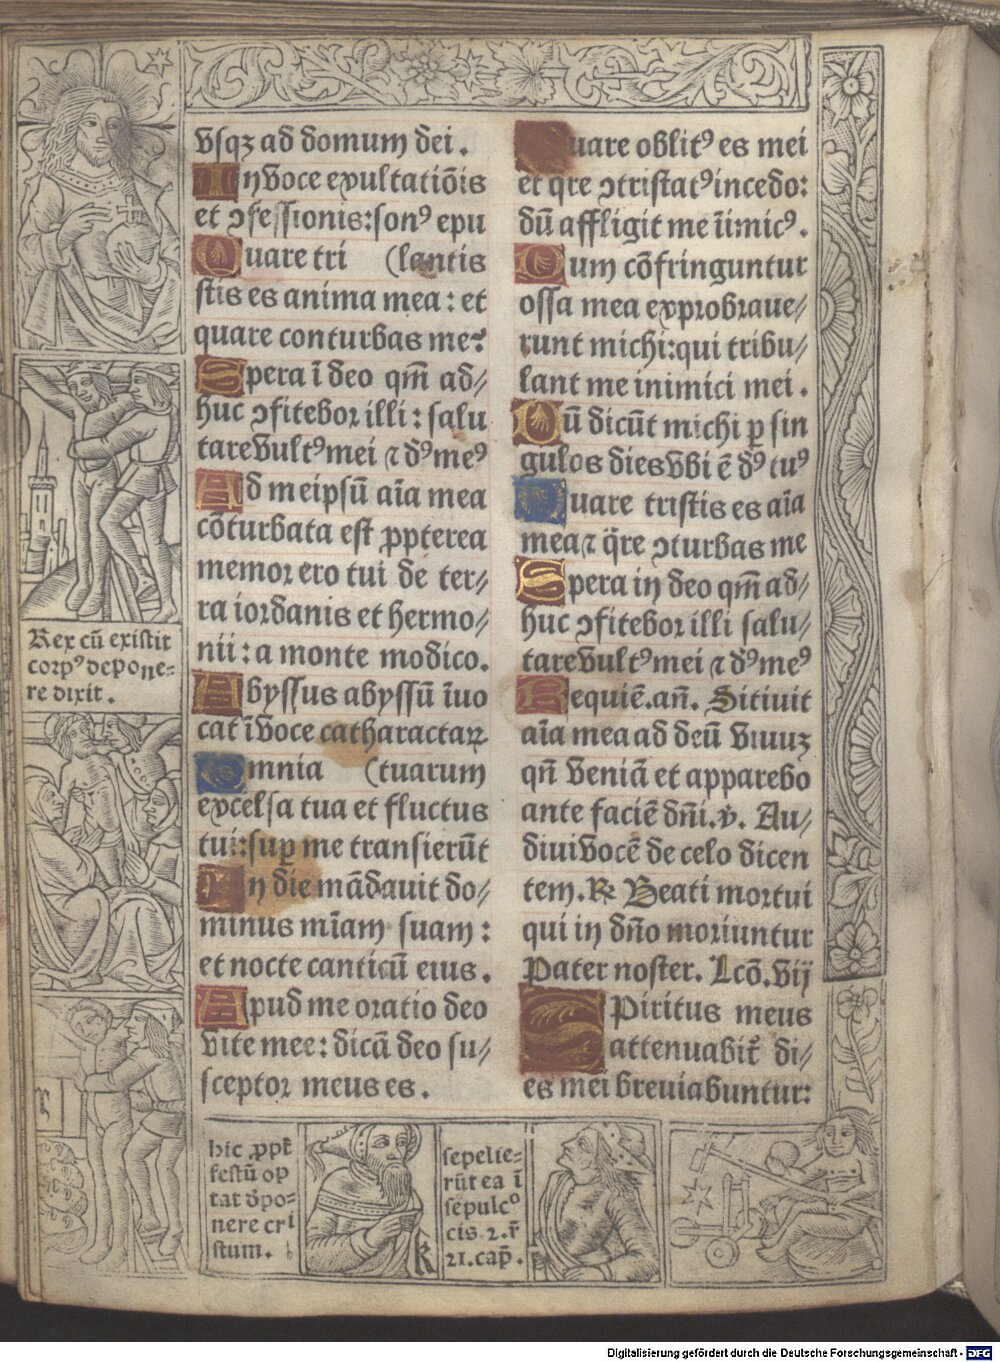 vsqꝫ ad domum dei.
In voce exultatiōis
et ↄfessionis:sonꝰ epu
Quare tri (lantis
stis es anima mea : et
quare conturbas me?
Spera ī deo qm̄ ad⸗
huc ↄfitebor illi : salu
tare vultꝰ mei ⁊ dꝰ meꝰ
Ad meipsū aīa mea
cōturbata est ꝓpterea
memor ero tui de ter⸗
ra iordanis et hermo⸗
nii : a monte modico.
Abyssus abyssū īuo
cat ī voce catharactaꝝ
Omnia (tuarum
excelsa tua et fluctus
tui:suꝑ me transierūt
In die mādauit do⸗
minus mīam suam :
et nocte canticū eius.
Apud me oratio deo
vite mee: dicā deo su⸗
sceptor meus es.
Quare oblitꝰ es mei
et q̄re ↄtristatꝰ incedo:
dū affligit me īimicꝰ.
Cum cōfringuntur
ossa mea exprobraue⸗
runt michi:qui tribu⸗
lant me inimici mei.
Cū dicūt michi ꝑ sin
gulos dies vbi ē dꝰ tuꝰ
Quare tristis es aīa
mea ⁊ q̄re ↄturbas me
Spera in deo qm̄ ad⸗
huc ↄfitebor illi salu⸗
tare vultꝰ mei ⁊ dꝰ meꝰ
Requiē.añ. Sitiuit
aīa mea ad deū viuuꝫ
qñ veniā et apparebo
ante faciē dñi.v̄. Au⸗
diui vocē de celo dicen
tem.℟ Beati mortui
qui in dño moriuntur
Pater noster. Lcō.vij
Spiritus meus
attenuabit᷑ di⸗
es mei breviabuntur:
Rex cū existit
corpꝰ depone⸗
re dixit.
hic ꝓpt̄
festū op
tat dꝓo⸗
nere cri
stum.
sepelie⸗
rūt ea ī
sepulcº
cis.2.r̄
21.cap̄.
Digitalisierung gefördert durch die Deutsche Forschungsgemeinschaft - DFG